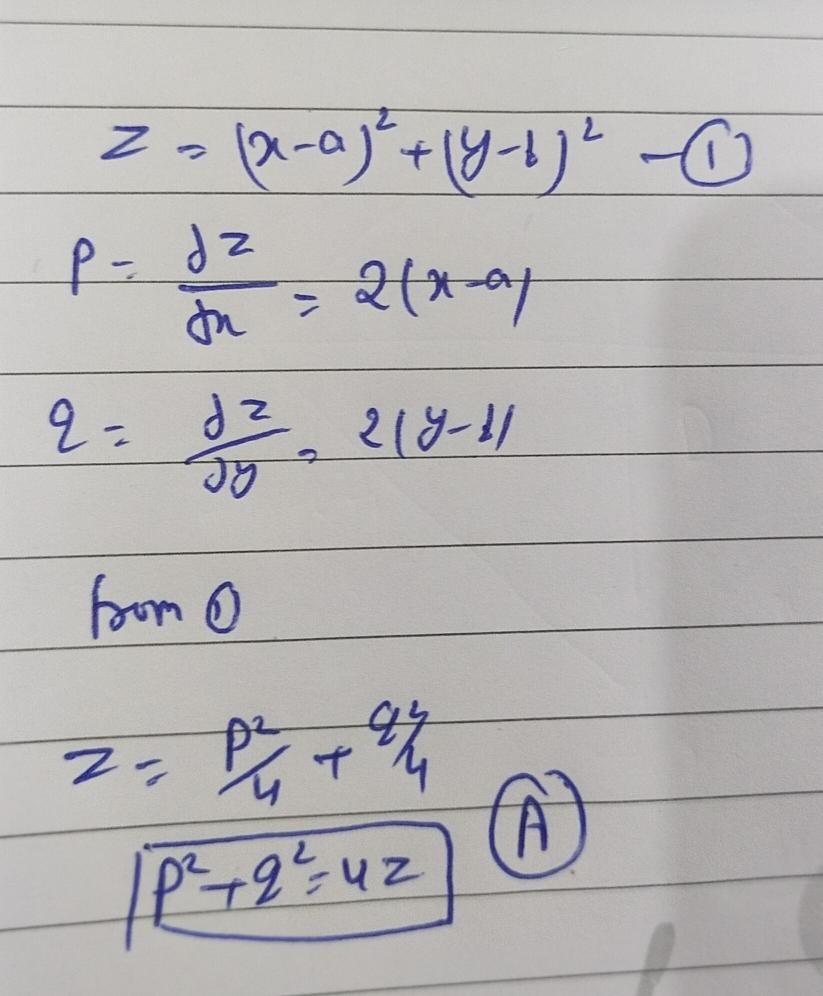 z = (x-a)² + (y-b)² - ①
p = ∂z/∂x = 2(x-a)
q = ∂z/∂y = 2(y-b)
from ①
z = p²/4 + q²/4
p² + q² = 4z Ⓐ